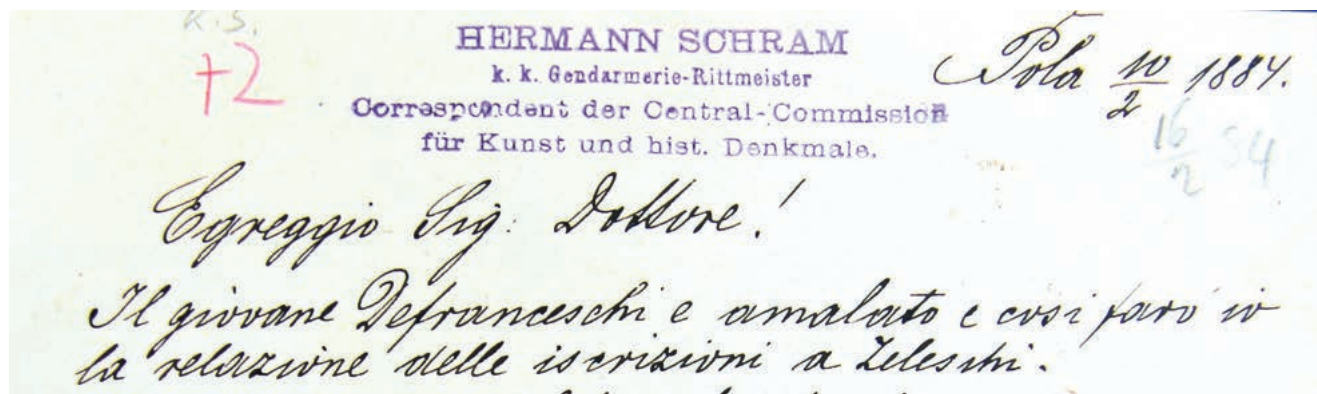 R.S.
+2
HERMANN SCHRAM
k. k. Gendarmerie-Rittmeister
Correspondent der Central-Commission
für Kunst und hist. Denkmale.
Pola 10/2 1884.
16/2 84
Egreggio Sig: Dottore!
Il giovane Defranceschi e amalato e cosi farò io
la relazione delle iscrizioni a Zeleschi.